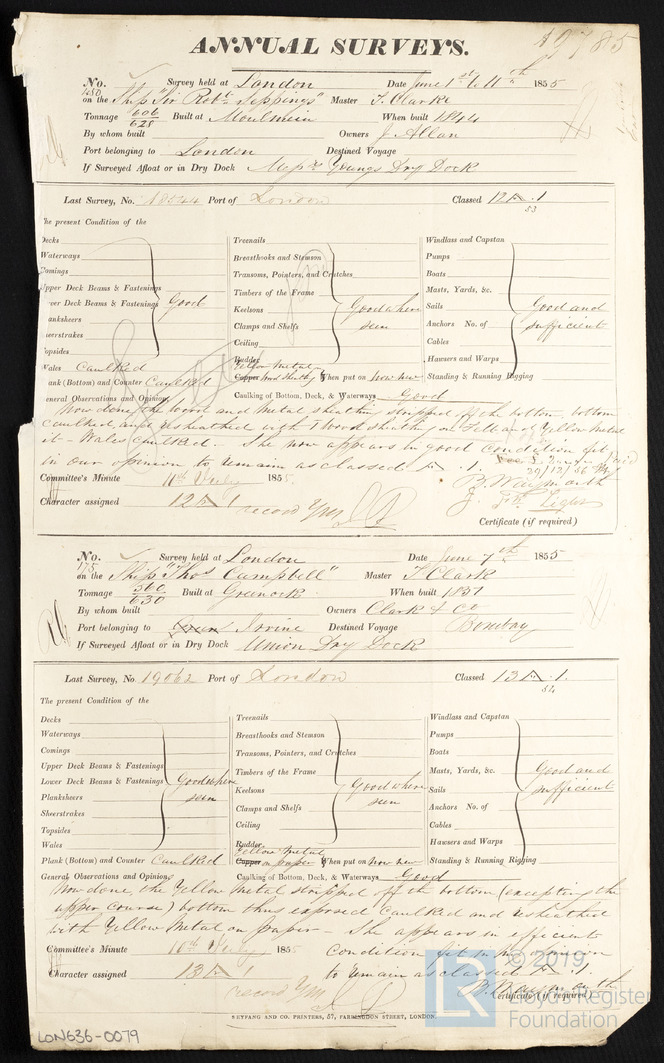 ANNUAL SURVEYS.
No. Survey held at London Date June 1st to 11th 1855
on the Ship "Sir Robt. Seppings" Master T. Clarke
Tonnage 606 Built at Moulmein When built 1844
628
By whom built Owners J. Allan
Port belonging to London Destined Voyage
If Surveyed Afloat or in Dry Dock Messrs Youngs Dry Dock
Last Survey, No. Port of London Classed 12 A.1
53
The present Condition of the
Decks
Waterways
Comings
Upper Deck Beams & Fastenings
Lower Deck Beams & Fastenings Good
Planksheers
Sheerstrakes
Topsides
Wales Caulked
Plank (Bottom) and Counter Caulked
General Observations and Opinion
Treenails
Breasthooks and Stemson
Transoms, Pointers, and Crutches
Timbers of the Frame
Keelsons Good where
Clamps and Shelfs seen
Ceiling
Rudder
Yellow Metal
Copper When put on now new
Caulking of Bottom, Deck, & Waterways Good
Windlass and Capstan
Pumps
Boats
Masts, Yards, &c.
Sails Good and
Anchors No. of sufficient
Cables
Hawsers and Warps
Standing & Running Rigging
Now done, the wood and metal sheathing stripped off the bottom, bottom
caulked, and resheathed with wood sheathing on Felt and Yellow Metal
it - Wales caulked. She now appears in good condition fit
in our opinion to remain as classed A.1.
29/12/56
Committee's Minute 1855 B. Waymouth
Character assigned 12 A 1 record YM
Certificate (if required)
No. Survey held at London Date June 7th 1855
175
on the Ship "Thos Campbell" Master T Clark
Tonnage 560 Built at Greenock When built 1851
630
By whom built Owners Clark & Co
Port belonging to Irvine Destined Voyage Bombay
If Surveyed Afloat or in Dry Dock Union Dry Dock
Last Survey, No. 19062 Port of London Classed 13 A.1.
54
The present Condition of the
Decks
Waterways
Comings
Upper Deck Beams & Fastenings
Lower Deck Beams & Fastenings Good where
Planksheers seen
Sheerstrakes
Topsides
Wales
Plank (Bottom) and Counter Caulked
General Observations and Opinion
Treenails
Breasthooks and Stemson
Transoms, Pointers, and Crutches
Timbers of the Frame
Keelsons Good where
Clamps and Shelfs seen
Ceiling
Rudder
Yellow Metal
Copper on paper When put on now new
Caulking of Bottom, Deck, & Waterways Good
Windlass and Capstan
Pumps
Boats
Masts, Yards, &c. Good and
Sails sufficient
Anchors No. of
Cables
Hawsers and Warps
Standing & Running Rigging
Now done, the Yellow Metal stripped off the bottom (excepting the
upper course) bottom thus exposed caulked and resheathed
with Yellow Metal on paper - She appears in efficient
Committee's Minute 10th July 1855 condition fit in my opinion
Character assigned 13 A 1 to remain as classed A.1.
record YM B. Waymouth
Certificate (if required)
SEYFANG AND CO. PRINTERS, 57, FARRINGDON STREET, LONDON.
LON636-0079
LR
© 2019
Lloyd's Register
Foundation